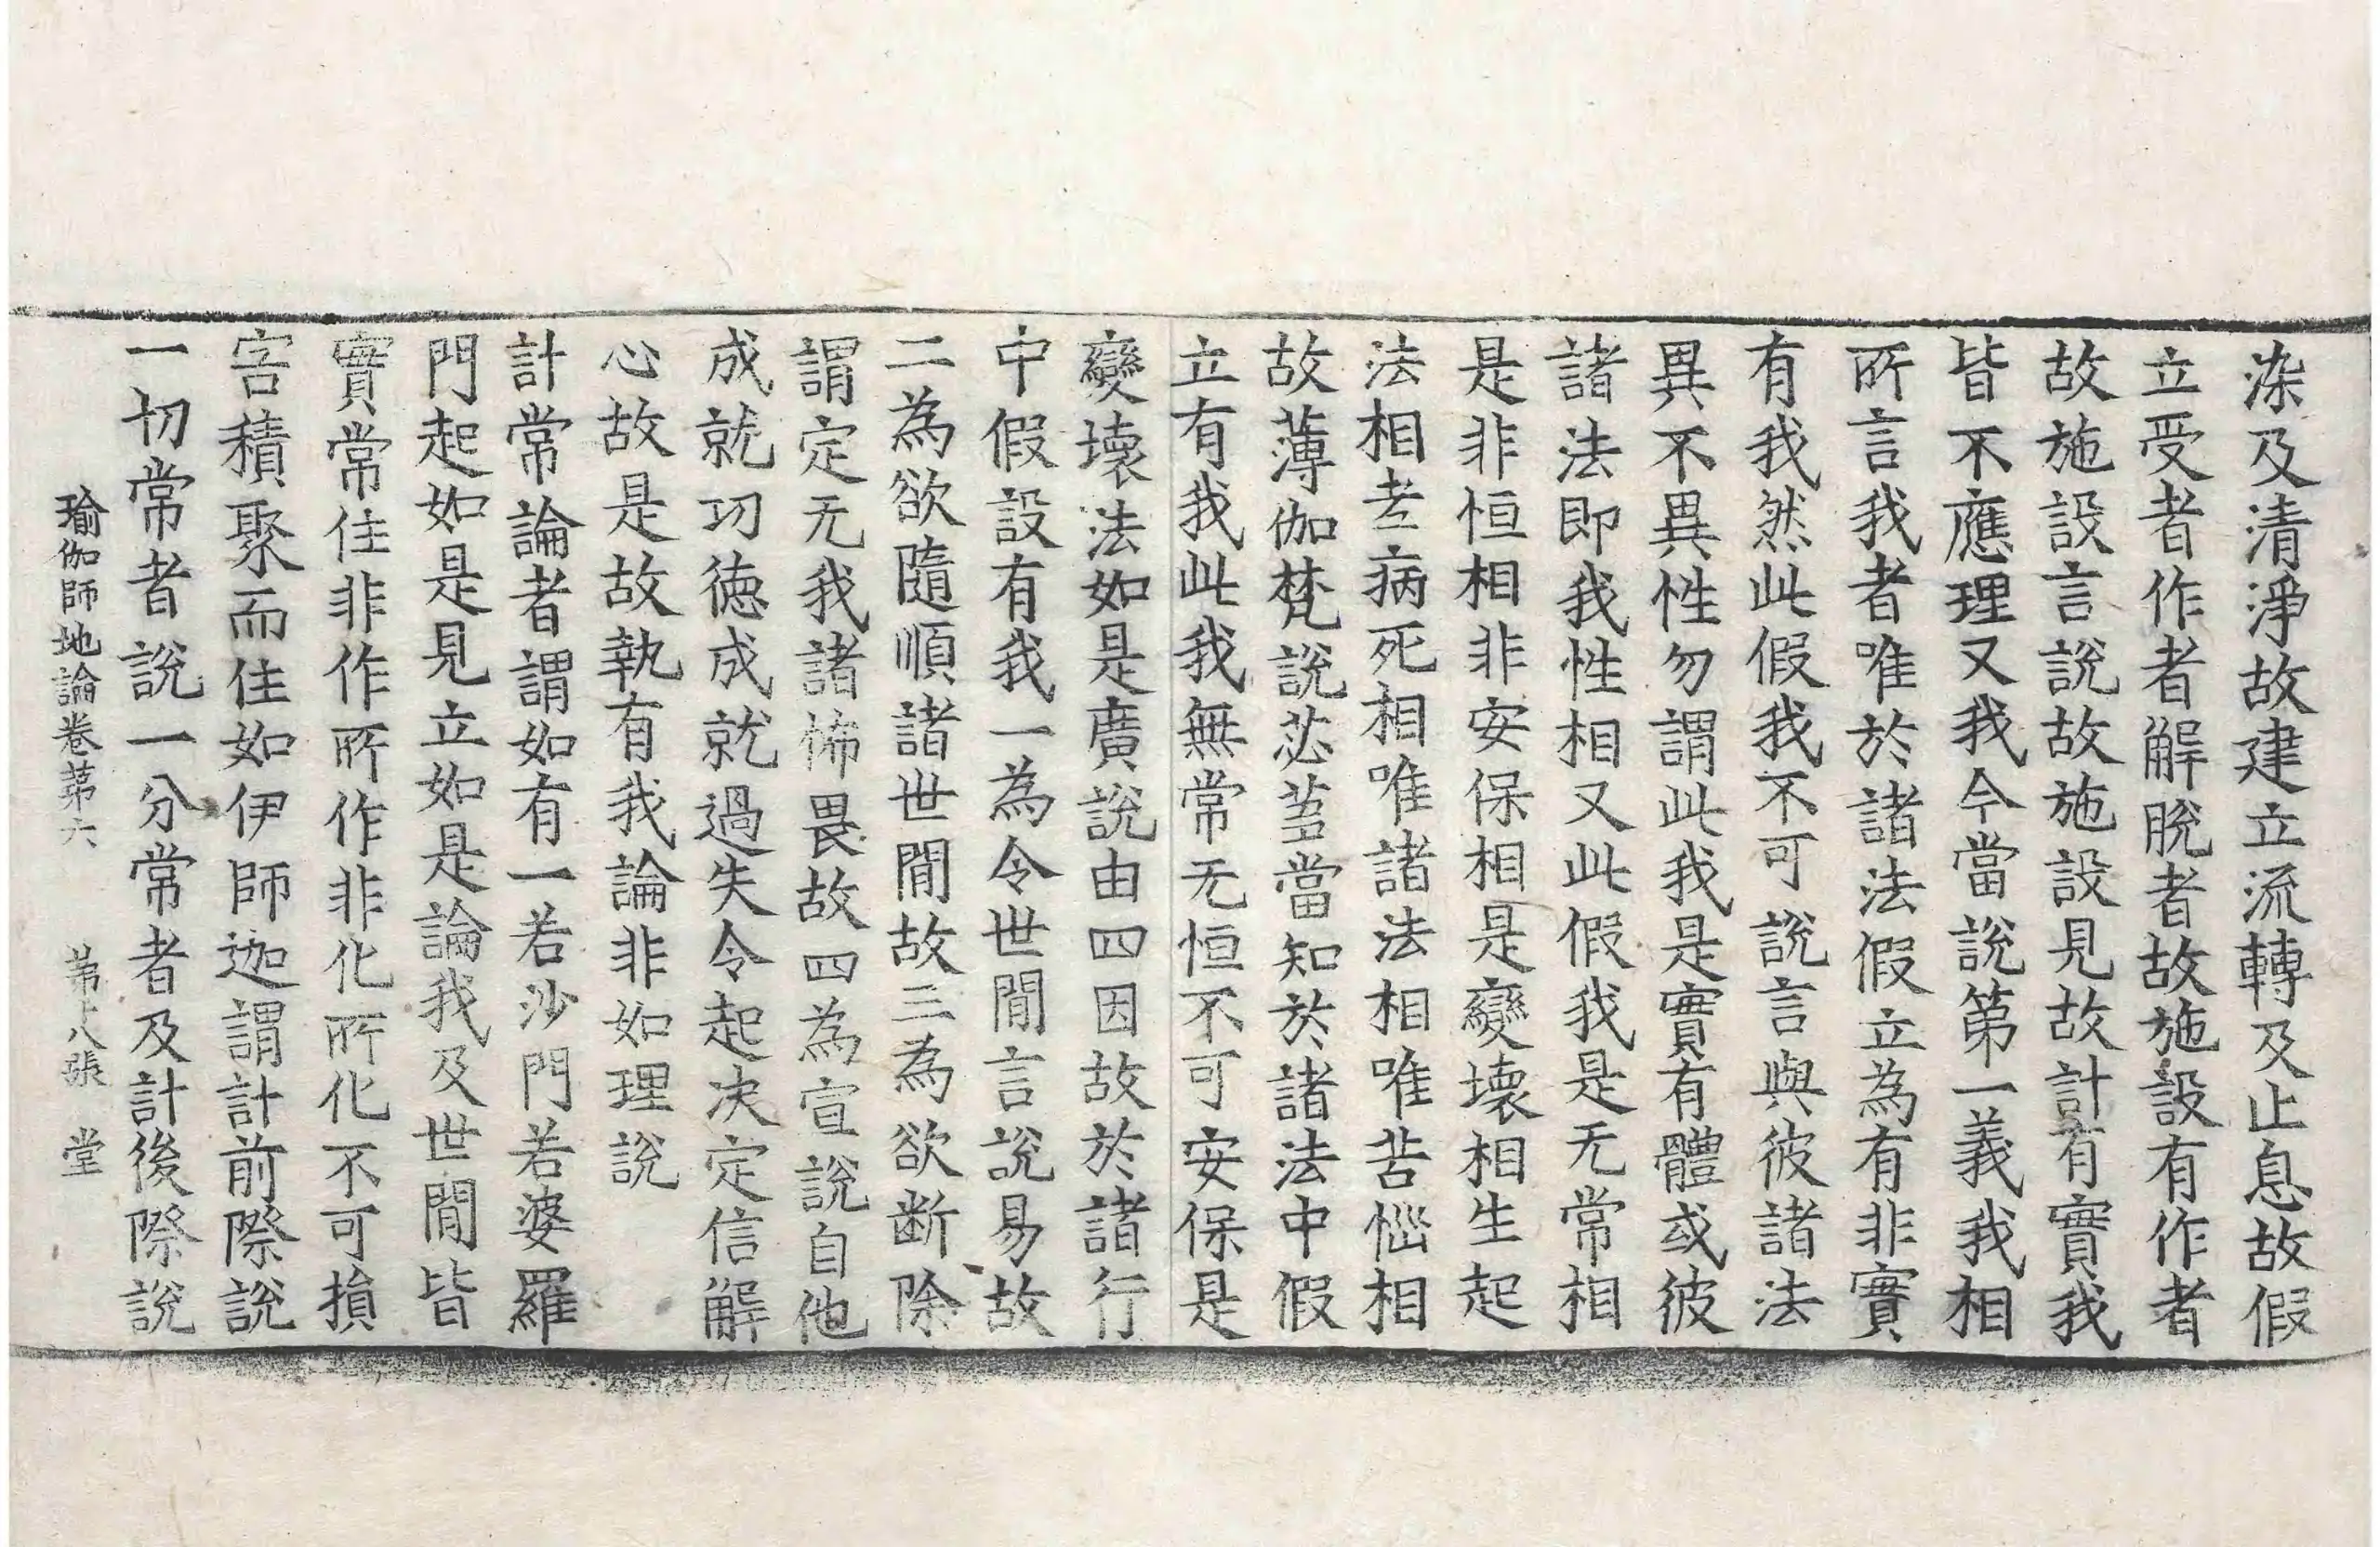 染及清淨故建立流轉及止息故假
立受者作者解脫者故施設有作者
故施設言說故施設見故計有實我
皆不應理又我今當說第一義我相
所言我者唯於諸法假立為有非實
有我然此假我不可說言與彼諸法
異不異性勿謂此我是實有體或彼
諸法即我性相又此假我是无常相
是非恒相非安保相是變壞相生起
法相老病死相唯諸法相唯苦惱相
故薄伽梵說苾蒭當知於諸法中假
立有我此我無常无恒不可安保是
變壞法如是廣說由四因故於諸行
中假設有我一為令世間言說易故
二為欲隨順諸世間故三為欲断除
謂定无我諸怖畏故四為宣說自他
成就功德成就過失令起決定信解
心故是故執有我論非如理說
計常論者謂如有一若沙門若婆羅
門起如是見立如是論我及世間皆
實常住非作所作非化所化不可損
害積聚而住如伊師迦謂計前際說
一切常者說一分常者及計後際說
瑜伽師地論卷苐六　苐十八張　堂